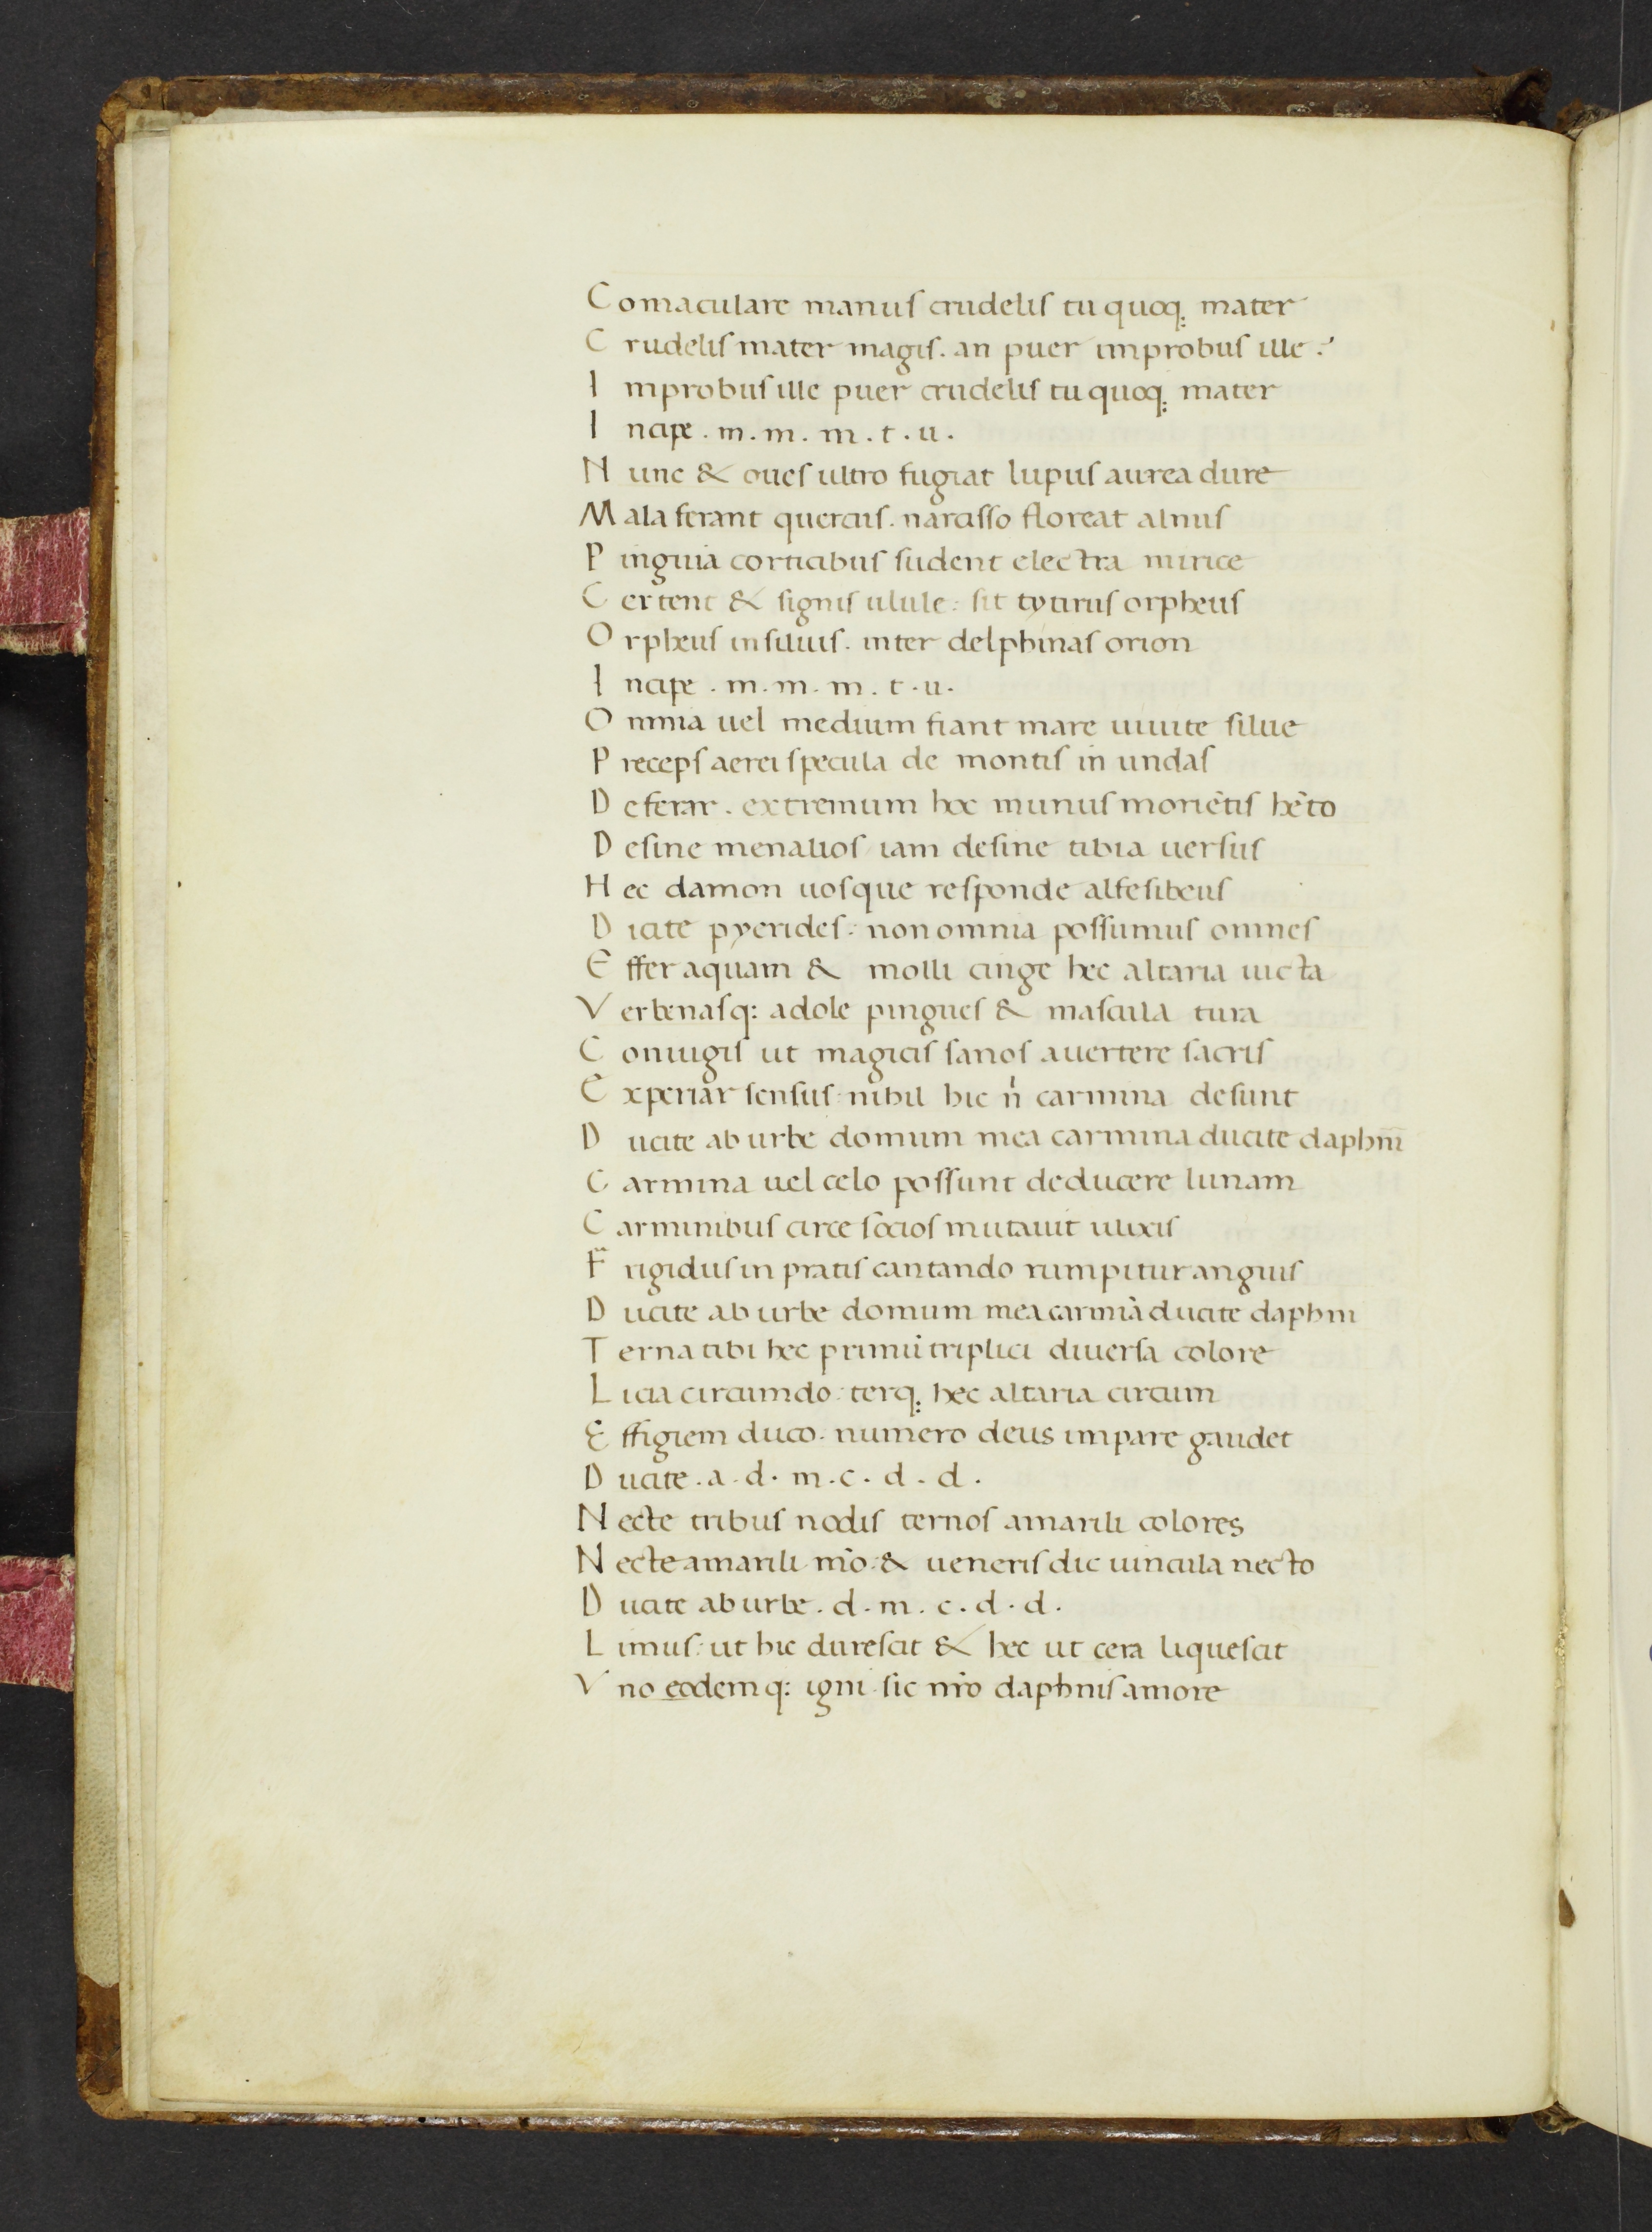 Comaculare manus crudelis tu quoq; mater
Crudelis mater magis. an puer improbus ille?
Improbus ille puer crudelis tu quoq; mater
Incipe . m. m. m. t. u.
Nunc & oues ultro fugiat lupus aurea dure
Mala ferant quercus. narcisso floreat alnus
Pinguia corticibus sudent electra mirice
Certent & signis ulule: sit tytirus orpheus
Orpheus in siluis. inter delphinas orion
Incipe . m. m. m. t. u.
Omnia uel medium fiant mare uiuite silue
Preceps aerei specula de montis in undas
Deferar. extremum hoc munus moriētis hēto
Desine menalios iam desine tibia uersus
Hec damon uosque responde alfesibeus
Dicite pyerides: non omnia possumus omnes
Effer aquam & molli cinge hec altaria uicta
Verbenasq: adole pingues & mascula tura
Coniugis ut magicis sanos auertere sacris
Experiar sensus: nihil hic n̍ carmina desunt
Ducite ab urbe domum mea carmina ducite daphnī
Carmina uel celo possunt deducere lunam
Carminibus circe socios mutauit ulixis
Frigidus in pratis cantando rumpitur anguis
Ducite ab urbe domum mea carmīa ducite daphni
Terna tibi hec primū triplici diuersa colore
Licia circumdo: terq; hec altaria circum
Effigiem duco. numero deus impare gaudet
Ducite . a. d. m. c. d. d.
Necte tribus nodis ternos amarili colores
Necte amarili mō: & ueneris dic uincula necto
Ducite ab urbe. d. m. c. d. d.
Limus: ut hic durescit & hec ut cera liquescit
Vno eodemq: igni sic nr̄o daphnis amore